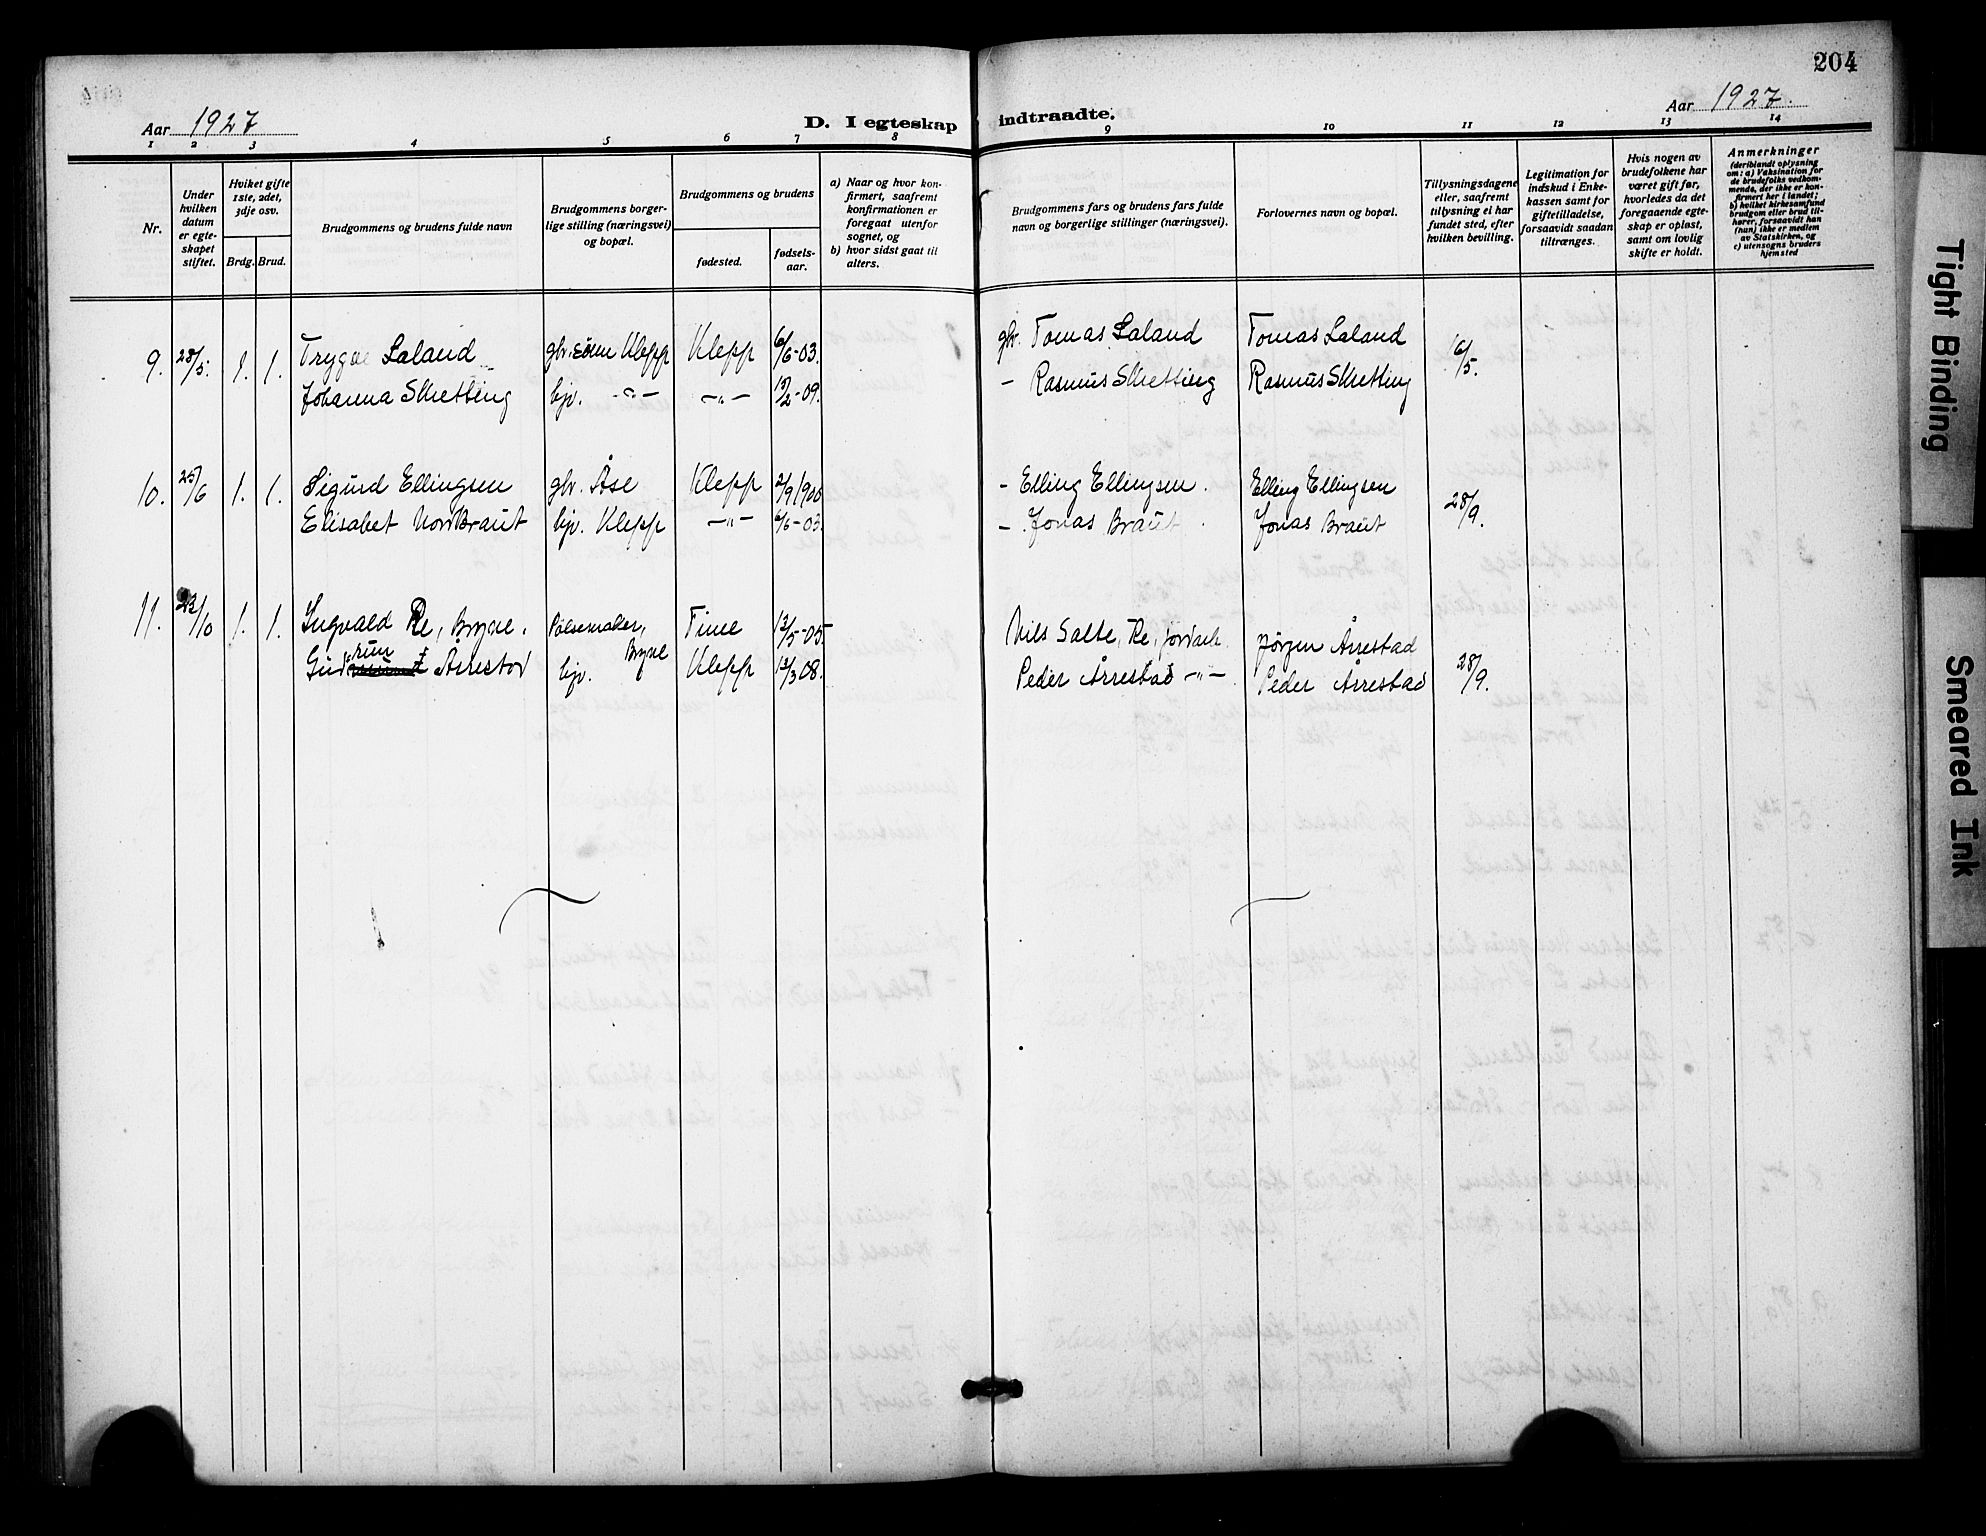 204
Aar 1927
D. I egteskap indtraadte.
Aar 1927.
1 2 3 4 5 6 7 8 9 10 11 12 13 14
Nr.
Under hvilken datum er egteskapet stiftet.
Hviket gifte 1ste, 2det, 3dje osv.
Brdg. Brud.
Brudgommens og brudens fulde navn
Brudgommens borgerlige stilling (næringsvei) og bopæl.
Brudgommens og brudens
fødested.
fødselsaar.
a) Naar og hvor konfirmert, saafremt konfirmationen er foregaat utenfor sognet, og
b) hvor sidst gaat til alters.
Brudgommens fars og brudens fars fulde navn og borgerlige stillinger (næringsvei).
Forlovernes navn og bopæl.
Tillysningsdagene eller, saafremt tillysning ei har fundet sted, efter hvilken bevilling.
Legitimation for indskud i Enkekassen samt for giftetilladelse, forsaavidt saadan tiltrænges.
Hvis nogen av brudefolkene har været gift før, hvorledes da det foregaaende egteskap er opløst, samt om lovlig skifte er holdt.
Anmerkninger
(deriblandt oplysning om: a) Vaksination for de brudefolks vedkommende, der ikke er konfirmert her i landet; b) hvilket kirkesamfund brudgom eller brud tilhører, forsaavidt han (hun) ikke er medlem av Statskirken, og c) utensogns bruders hjemsted
9. 28/5. 1. 1. Trygve Laland gbr. sønn Klepp Klepp 6/6-03. gbr. Tomas Laland Tomas Laland 16/5.
Johanna Skretting hjv. -"- -"- /2-09. - Rasmus Skretting Rasmus Skretting
10. 25/6 1. 1. Sigurd Ellingsen gbr. Åse Klepp 2/9 1900 - Elling Ellingsen. Elling Ellingsen 28/9.
Elisabet Nordbraut hjv. Klepp -"- 6/6-03. - Jonas Braut Jonas Braut
11. 22/10 1. 1. Ingvald Re, Bryne. Pølsemaker, Bryne Time 13/5-05. Nils Salte, Re, jordarb. Jørgen Årrestad 28/9.
Gudrun Årrestad hjv. Klepp 12/3 08. Peder Årrestad -"- Peder Årrestad
Tight Binding
Smeared Ink